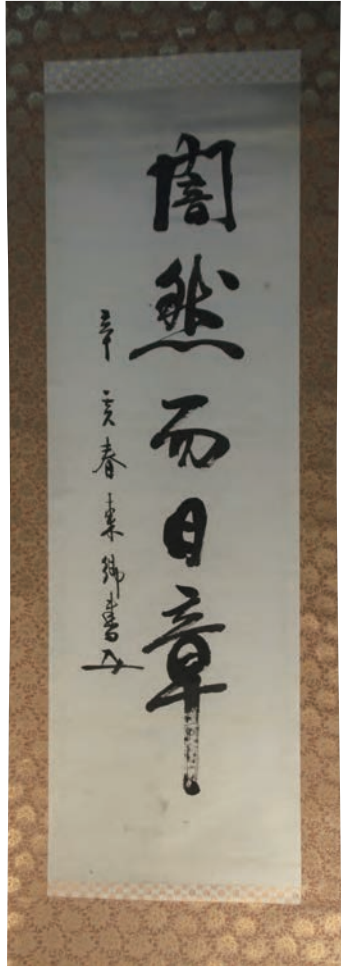 闇然而日章
辛亥春東鄉書